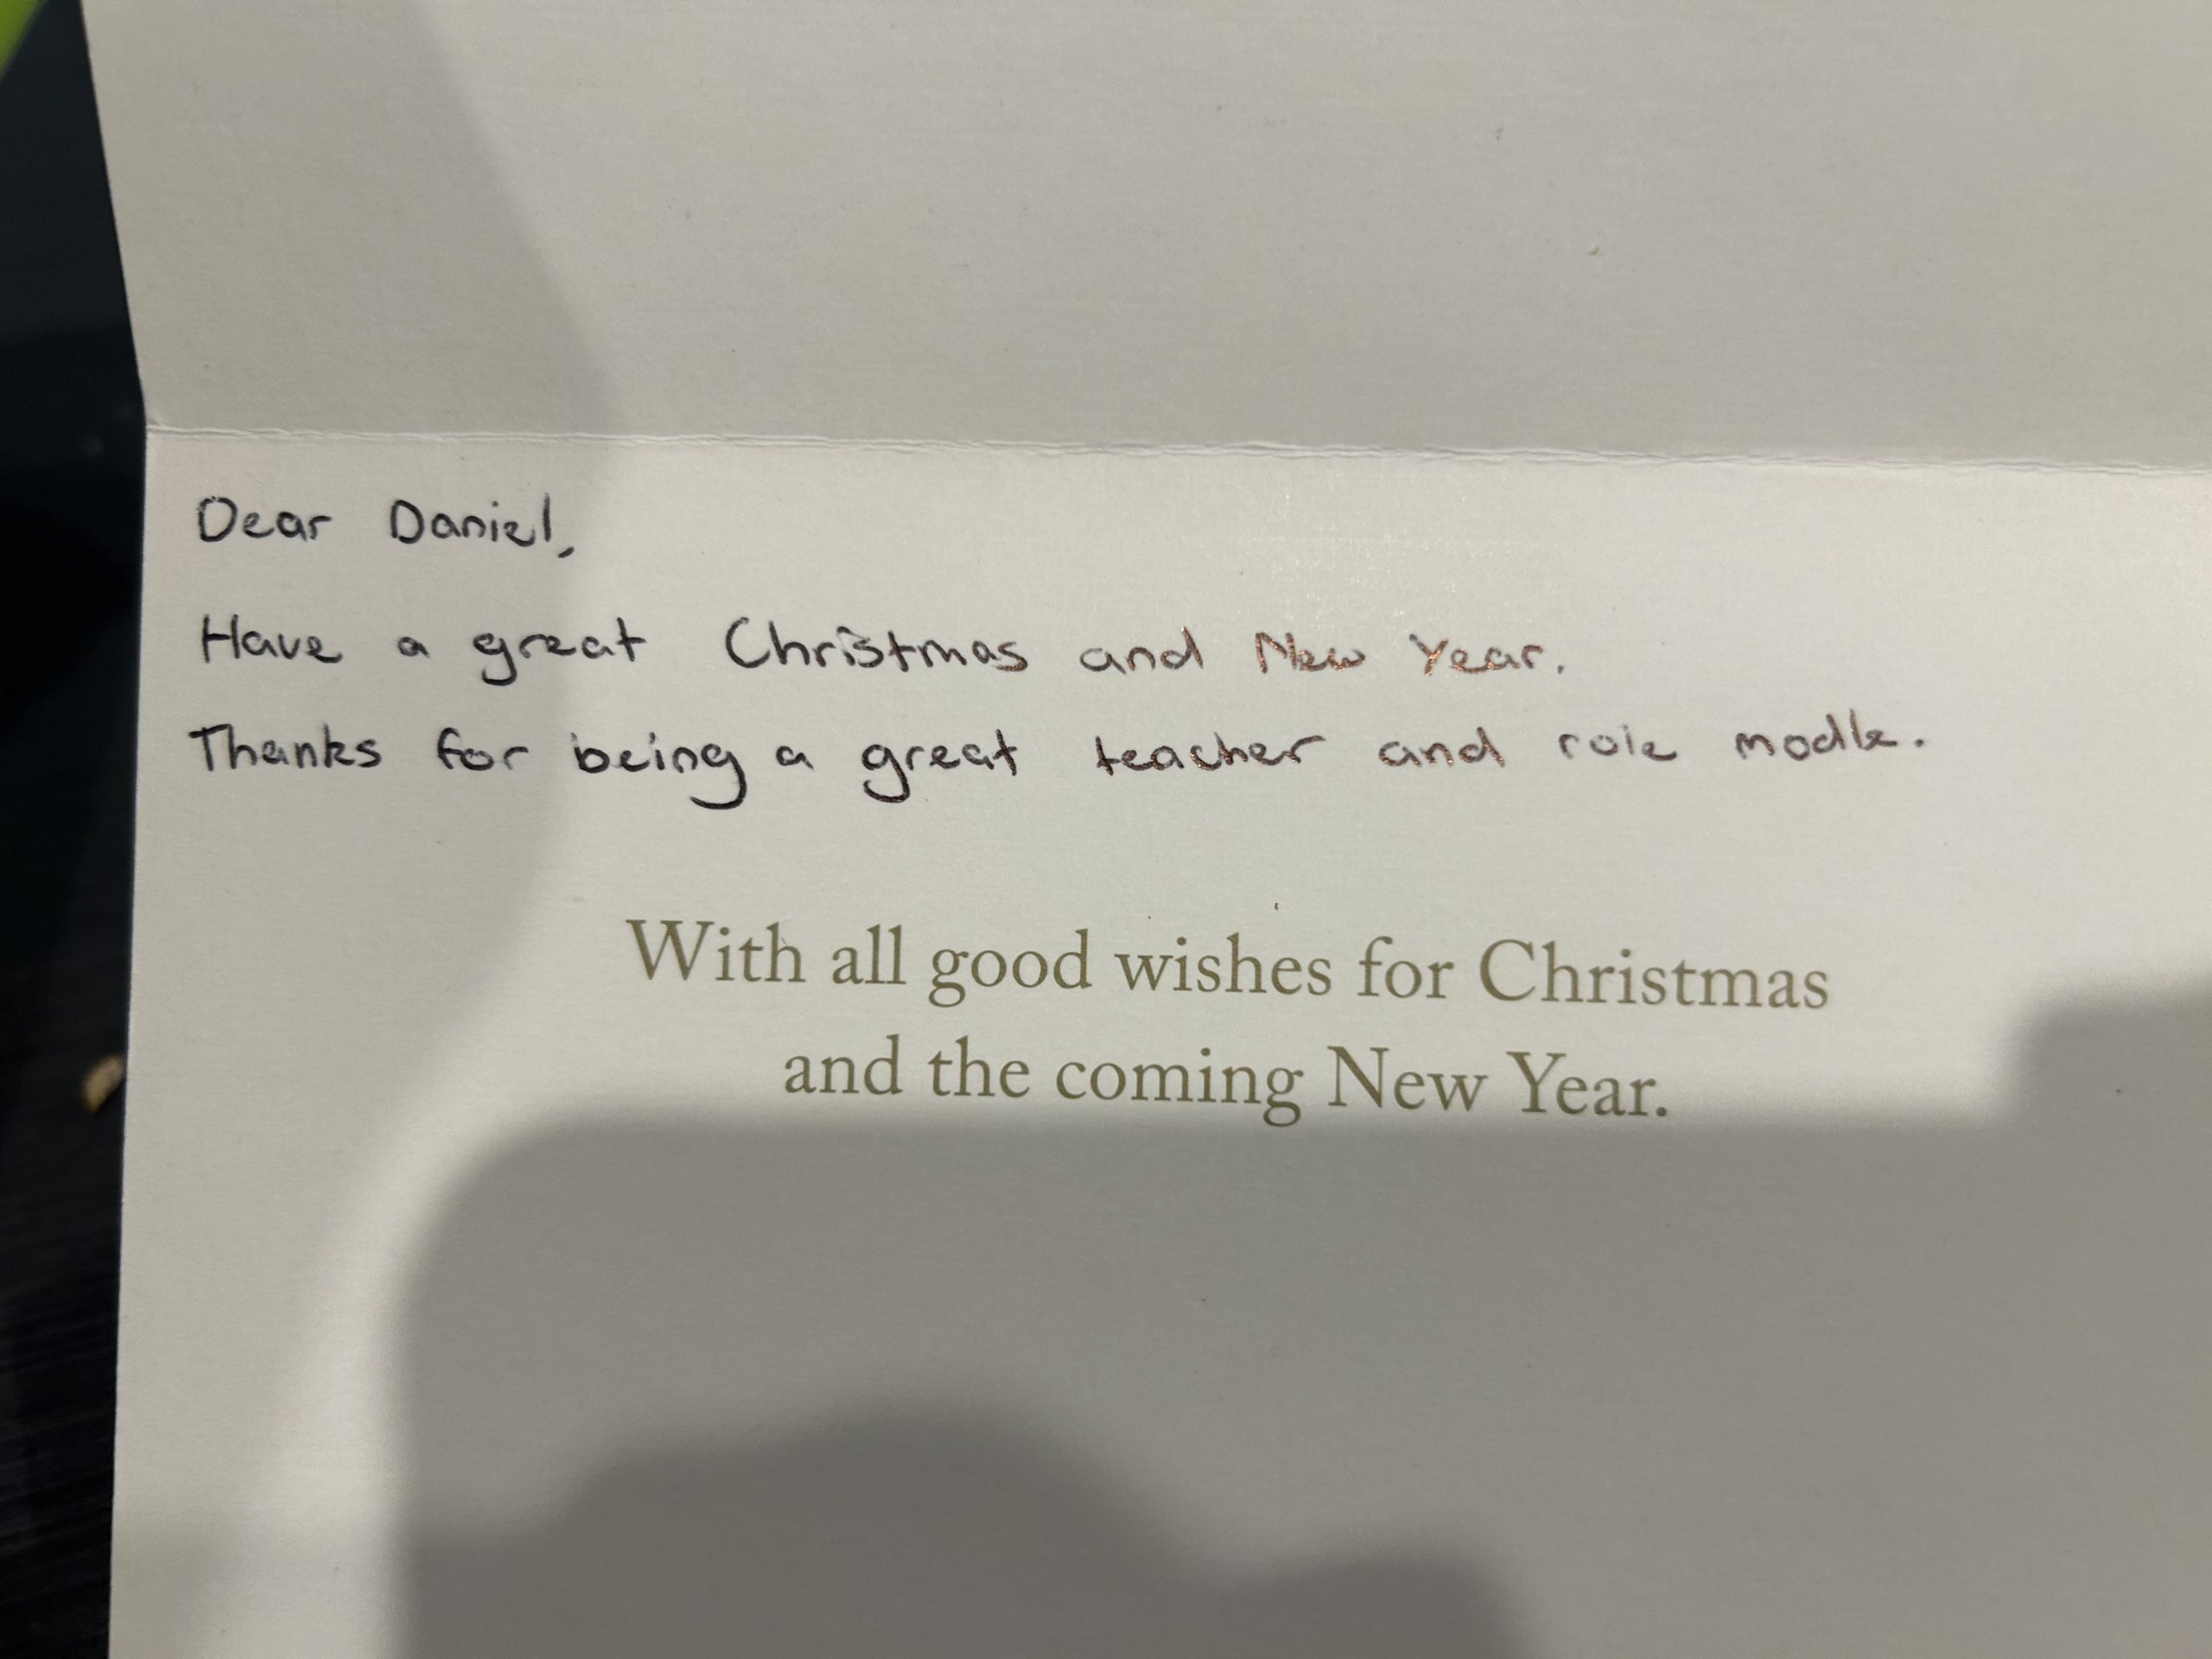 Dear Daniel,
Have a great Christmas and New Year.
Thanks for being a great teacher and role modle.
With all good wishes for Christmas
and the coming New Year.